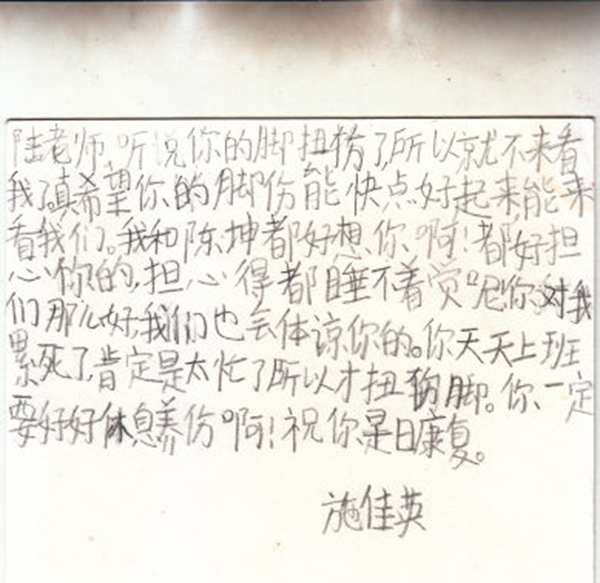 陆老师,听说你的脚扭伤了,所以就不来看
我了。真希望你的脚伤能快点好起来,能来
看我们。我和陈坤都好想你啊!都好担
心你的,担心得都睡不着觉呢。你对我
们那么好,我们也会体谅你的。你天天上班
累死了,肯定是太忙了所以才扭伤脚。你一定
要好好休息养伤啊!祝你是日康复。
施佳英